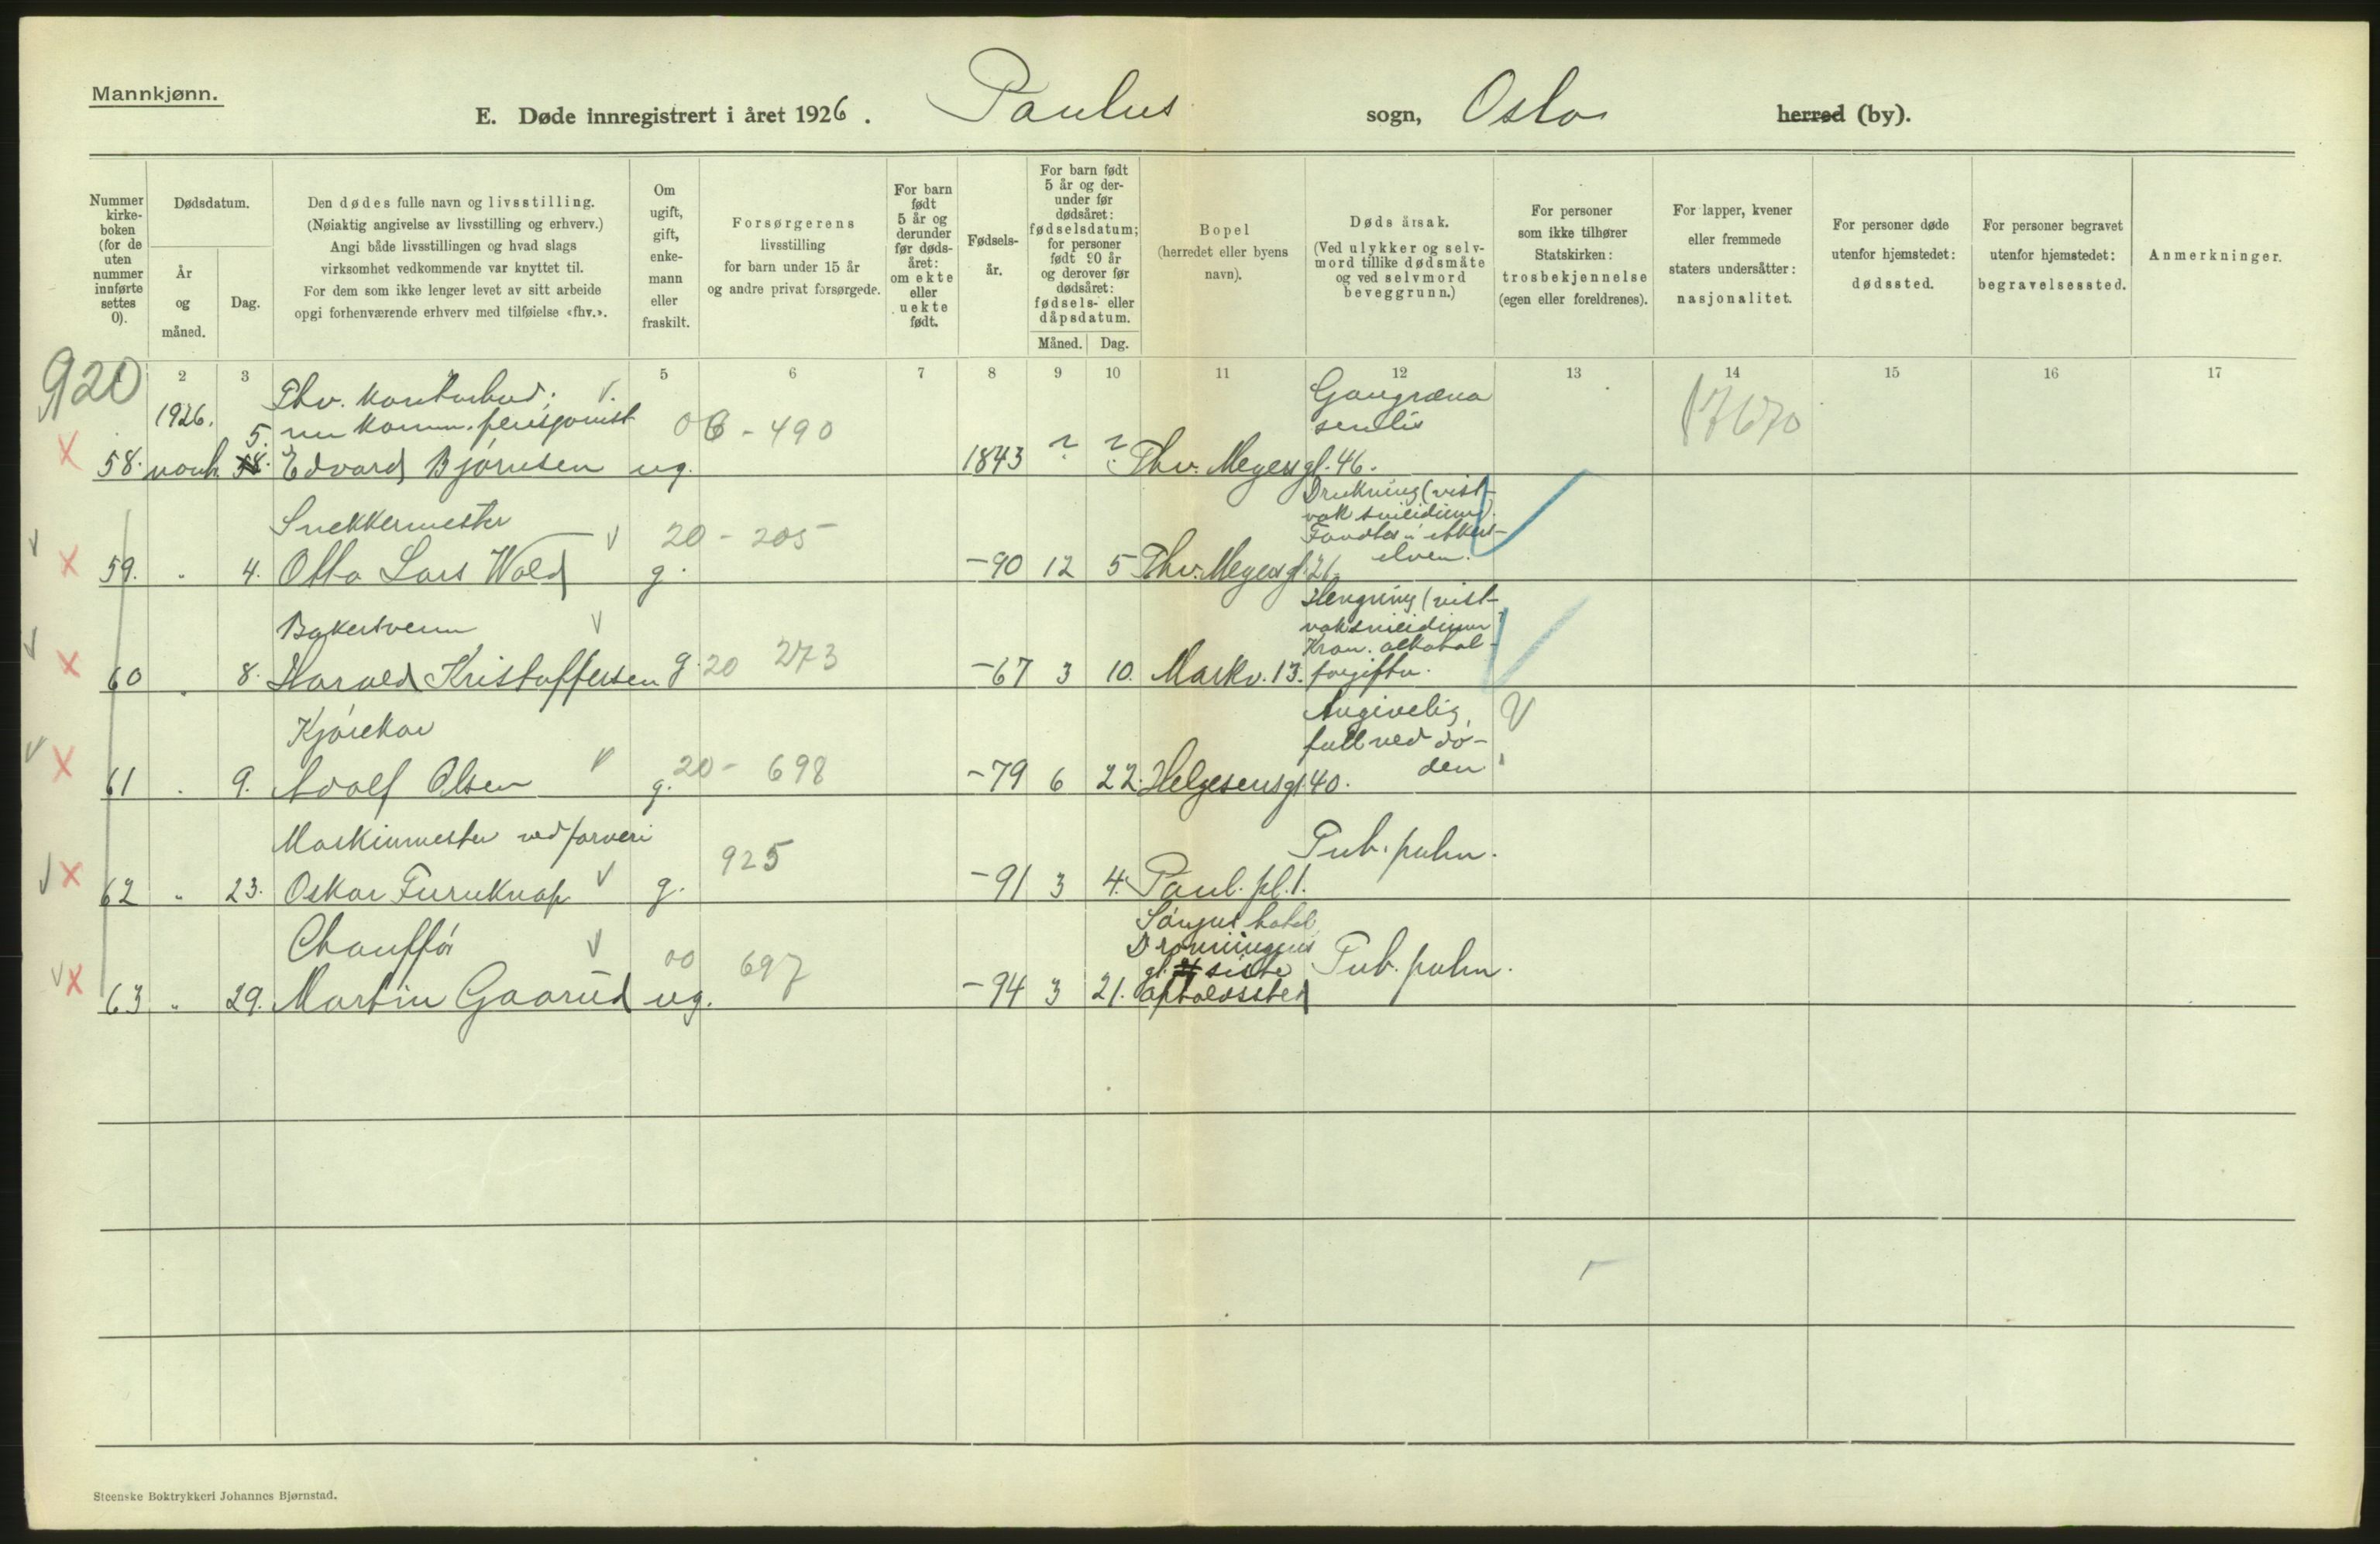 Mannkjønn.
E. Døde innregistrert i året 1926. Paulus sogn, Oslo herred (by).
Nummer kirke-boken (for de uten nummer innførte settes 0).
Dødsdatum.
År og måned.
Dag.
Den dødes fulle navn og livsstilling.
(Nøiaktig angivelse av livsstilling og erhverv.)
Angi både livsstillingen og hvad slags
virksomhet vedkommende var knyttet til.
For dem som ikke lenger levet av sitt arbeide
opgi forhenværende erhverv med tilføielse «fhv.».
Om ugift, gift, enke-mann eller fraskilt.
Forsørgerens
livsstilling
for barn under 15 år
og andre privat forsørgede.
For barn født 5 år og derunder før døds-året: om ekte eller uekte født.
Fødsels-år.
For barn født 5 år og der-under før dødsåret: fødselsdatum; for personer født 90 år og derover før dødsåret: fødsels- eller dåpsdatum.
Måned. Dag.
Bopel
(herredet eller byens navn).
Døds årsak.
(Ved ulykker og selv-mord tillike dødsmåte og ved selvmord beveggrunn.)
For personer som ikke tilhører Statskirken: trosbekjennelse (egen eller foreldrenes).
For lapper, kvener eller fremmede staters undersåtter: nasjonalitet.
For personer døde utenfor hjemstedet: dødssted.
For personer begravet utenfor hjemstedet: begravelsessted.
Anmerkninger.
920 2 3 5 6 7 8 9 10 11 12 13 14 15 16 17
1926. Fhv. kontorbud; Gangræna
5. nu komm. pensjonist 06 - 490 senilis 17670
58. Edvard Bjørnsen ug. 1843 ? ? Thv. Meyersgt. 46.
Snekkermester 20 - 205 Drukning (vist-
nok suicidium).
59. " 4. Otto Lars Wold g. -90 12 5 Thv. Meyersgt. 21. elven.
Bakersvenn 20 273 Hengning (vist-
nok suicidium
Kron. alkohol-
60 " 8. Harald Kristoffersen g. -67 3 10. Markv. 13. forgiftn.
Kjørekar 20 - 698 Angivelig
full ved dø-
61 " 9. Adolf Olsen g. -79 6 22. Helgesensgt. 40. den
Maskinmester ved farveri 925 Tub. pulm.
62 " 23. Oskar Furuknap g. -91 3 4. Paul. pl. 1.
Chauffør 00 697 hotel
Dronningens
gt. siste Tub. pulm.
63 " 29. Martin Gaarud ug. -94 3 21. opholdssted
Steenske Boktrykkeri Johannes Bjørnstad.